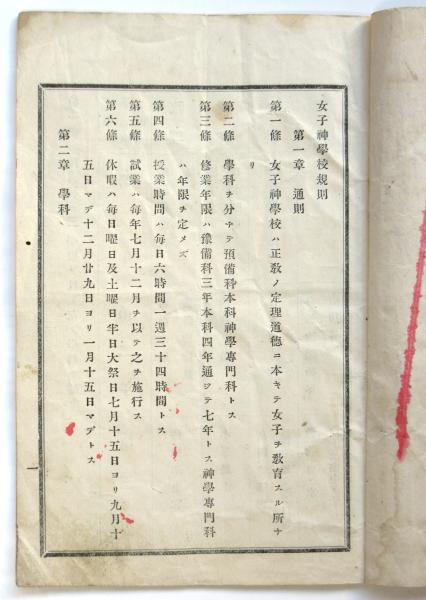 女子神學校規則
第一章　通則
第一條　女子神學校ハ正敎ノ定理道德ニ本キテ女子ヲ敎育スル所ナ
リ
第二條　學科ヲ分チテ預備科本科神學專門科トス
第三條　修業年限ハ豫備科三年本科四年通ジテ七年トス神學專門科
ハ年限ヲ定メズ
第四條　授業時間ハ每日六時間一週三十四時間トス
第五條　試業ハ每年七月十二月ヲ以テ之ヲ施行ス
第六條　休暇ハ每日曜日及土曜日半日大祭日七月十五日ヨリ九月十
五日マデ十二月廿九日ヨリ一月十五日マデトス
第二章　學科
一